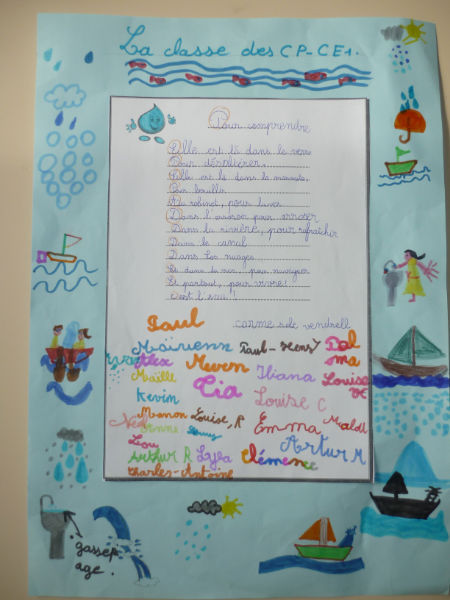 La classe des CP-CE1.
Pour comprendre
Elle est là dans le verre
Pour désaltérer,
Elle est là dans la marmite,
Pour bouillir
Au robinet, pour laver
Dans l'arrosoir pour arroser
Dans la rivière, pour rafraîchir
Dans le canal
Dans les nuages
Et dans la mer, pour naviguer
Et partout, pour vivre!
C'est l'eau!
Paul carme de vendrell
Maïrienn Paul-Henry
Alex Meven Iliana
Maëlle Louise
Kevin Tia Louise C
Manon Louise, R Emma
Lou
Arthur R Layla Clémence Artur M
Charles-Antoine
gassep
age.